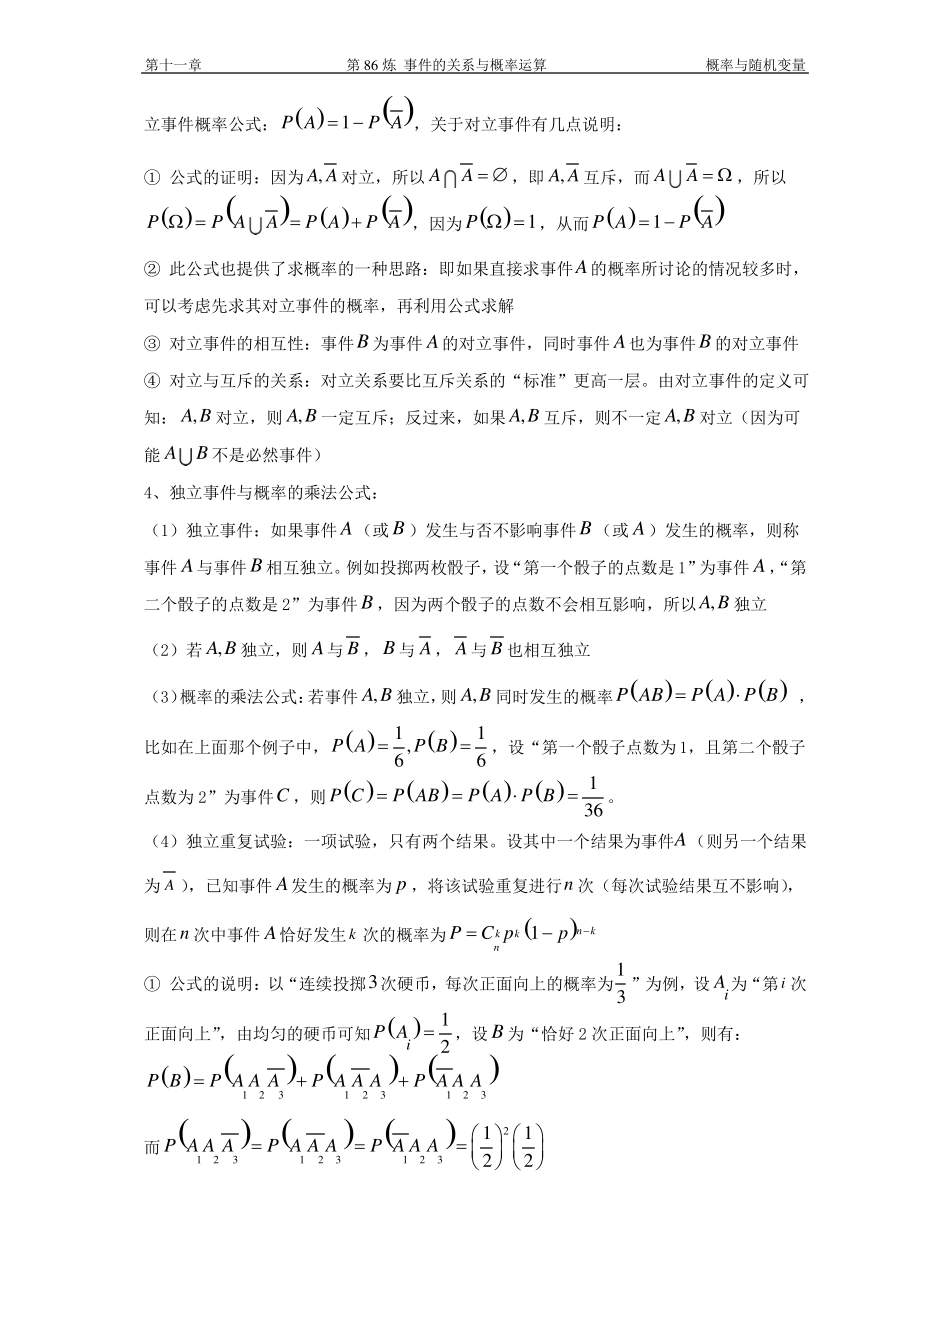 第十一章 第 86 炼 事件的关系与概率运算 概率与随机变量
立事件概率公式：P(A)=1−P(A̅)，关于对立事件有几点说明：
① 公式的证明：因为 A,A̅ 对立，所以 A⋂A̅=∅，即 A,A̅ 互斥，而 A⋃A̅=Ω，所以
P(Ω)=P(A⋃A̅)=P(A)+P(A̅)，因为 P(Ω)=1，从而 P(A)=1−P(A̅)
② 此公式也提供了求概率的一种思路：即如果直接求事件 A 的概率所讨论的情况较多时，
可以考虑先求其对立事件的概率，再利用公式求解
③ 对立事件的相互性：事件 B 为事件 A 的对立事件，同时事件 A 也为事件 B 的对立事件
④ 对立与互斥的关系：对立关系要比互斥关系的“标准”更高一层。由对立事件的定义可
知：A,B 对立，则 A,B 一定互斥；反过来，如果 A,B 互斥，则不一定 A,B 对立（因为可
能 A⋃B 不是必然事件）
4、独立事件与概率的乘法公式：
（1）独立事件：如果事件 A（或 B）发生与否不影响事件 B（或 A）发生的概率，则称
事件 A 与事件 B 相互独立。例如投掷两枚骰子，设“第一个骰子的点数是 1”为事件 A，“第
二个骰子的点数是 2”为事件 B，因为两个骰子的点数不会相互影响，所以 A,B 独立
（2）若 A,B 独立，则 A 与 B̅，B 与 A̅，A̅ 与 B̅ 也相互独立
（3）概率的乘法公式：若事件 A,B 独立，则 A,B 同时发生的概率 P(AB)=P(A)·P(B)，
比如在上面那个例子中，P(A)=1/6,P(B)=1/6，设“第一个骰子点数为 1，且第二个骰子
点数为 2”为事件 C，则 P(C)=P(AB)=P(A)·P(B)=1/36。
（4）独立重复试验：一项试验，只有两个结果。设其中一个结果为事件 A（则另一个结果
为 A̅），已知事件 A 发生的概率为 p，将该试验重复进行 n 次（每次试验结果互不影响），
则在 n 次中事件 A 恰好发生 k 次的概率为 P=Cₙᵏpᵏ(1−p)ⁿ⁻ᵏ
① 公式的说明：以“连续投掷 3 次硬币，每次正面向上的概率为 1/3”为例，设 Aᵢ 为“第 i 次
正面向上”，由均匀的硬币可知 P(Aᵢ)=1/2，设 B 为“恰好 2 次正面向上”，则有：
P(B)=P(A₁A₂A̅₃)+P(A₁A̅₂A₃)+P(A̅₁A₂A₃)
而 P(A₁A₂A̅₃)=P(A₁A̅₂A₃)=P(A̅₁A₂A₃)=(1/2)²(1/2)